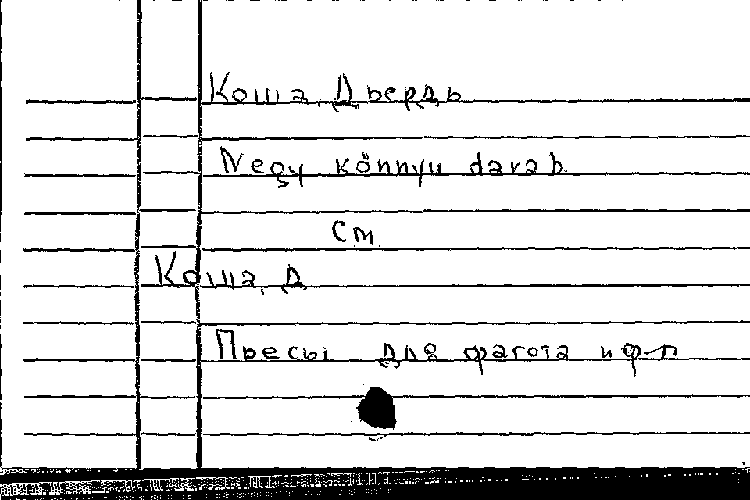 Коша, Дьердь
Negy könnyu darab.
См
Коша, Д
Пьесы для фагота и ф-п